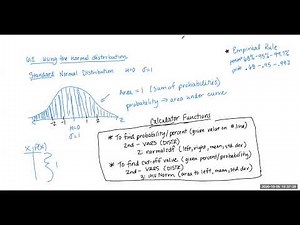 6.2 Using the normal distribution
Standard Normal Distribution μ=0
σ=1
* Empirical Rule
percent 68%-95%-99.7%
prob .68 - .95 - .997
Area = 1 (sum of probabilities)
probability → area under curve
μ=0
σ=1
X | P(x)
1
Calculator Functions
* To find probability/percent (given value on # line)
2nd - VARS (DISTR)
2: normalcdf (left, right, mean, std dev)
* To find cut-off value (given percent/probability)
2nd - VARS (DISTR)
3: invNorm (area to left, mean, std dev)